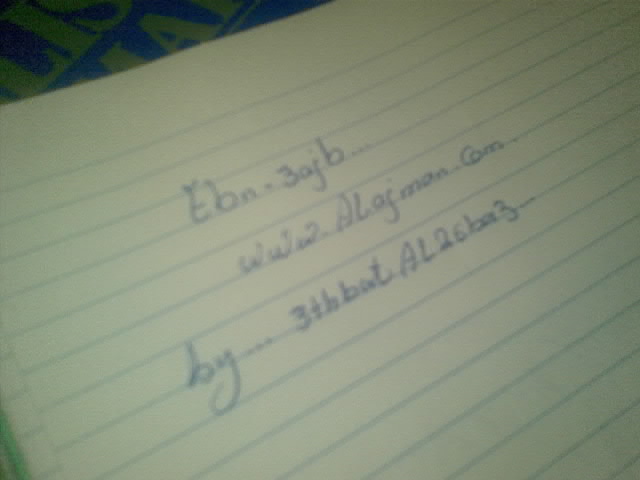 Ebn-3ajb...
www.ALajman.com
by.... 3tbbat AL26ba3...